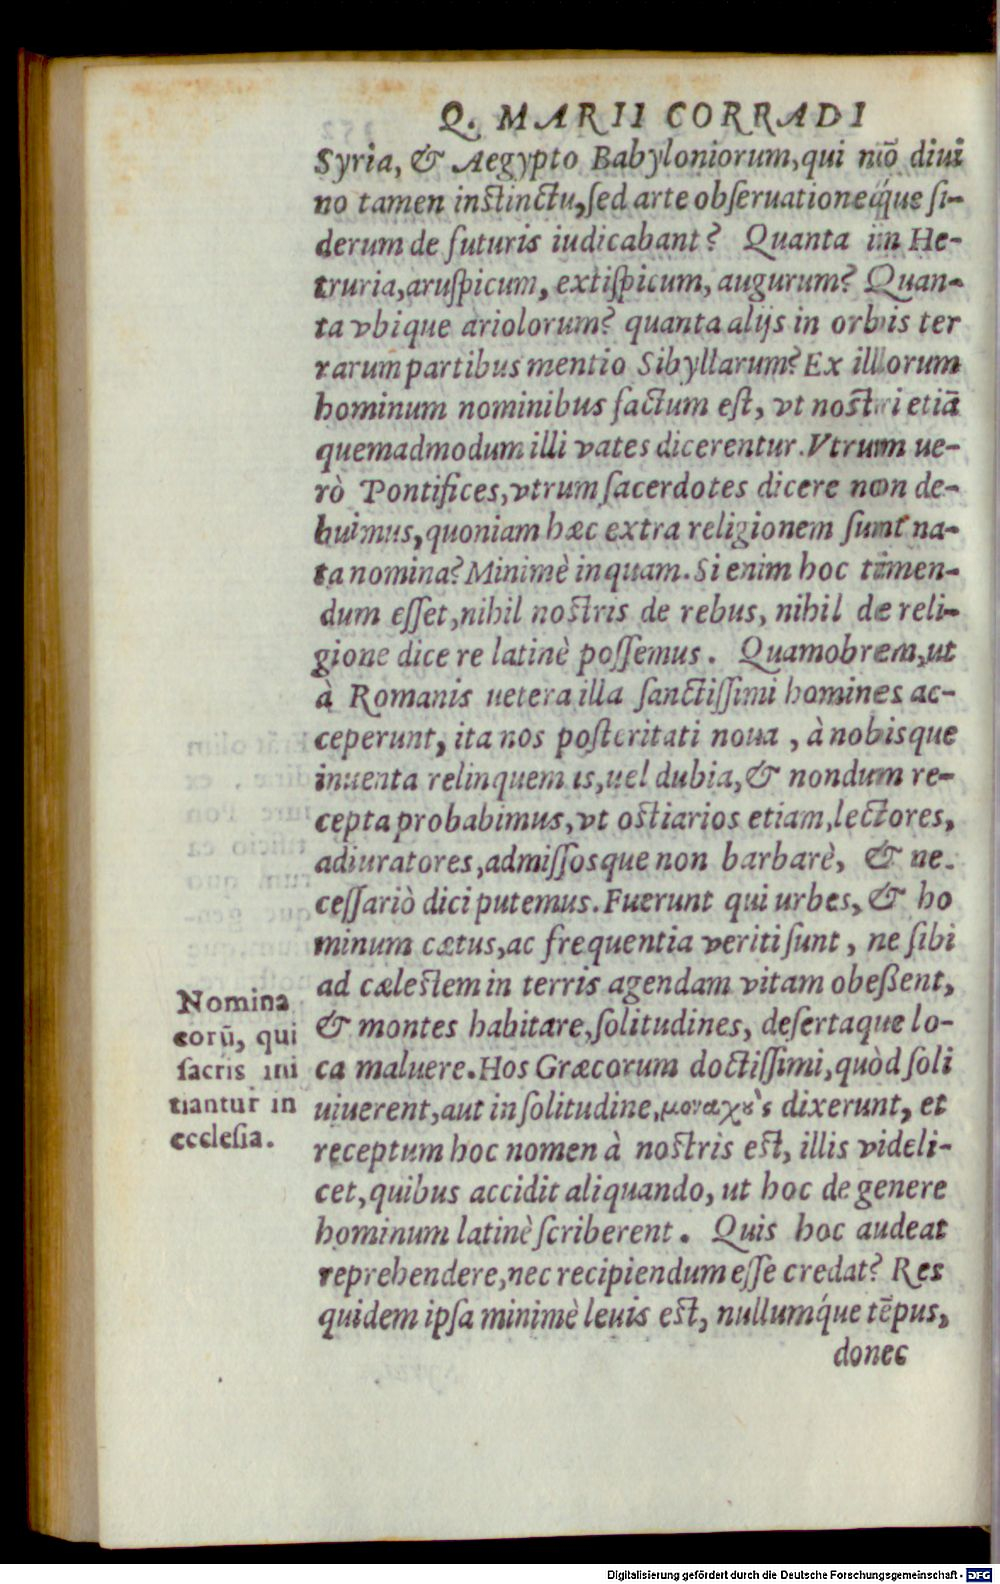 Q. MARII CORRADI
Syria, & Aegypto Babyloniorum, qui nõ diui
no tamen instinctu, sed arte obseruationeq́ue si-
derum de futuris iudicabant? Quanta in He-
truria, aruspicum, extispicum, augurum? Quan-
ta vbique ariolorum? quanta alijs in orbis ter
rarum partibus mentio Sibyllarum? Ex illorum
hominum nominibus factum est, vt nostri etiã
quemadmodum illi vates dicerentur. Vtrum ue-
rò Pontifices, vtrum sacerdotes dicere non de-
buimus, quoniam hæc extra religionem sunt na-
ta nomina? Minimè inquam. Si enim hoc timen-
dum esset, nihil nostris de rebus, nihil de reli-
gione dicere latinè possemus. Quamobrem, ut
à Romanis uetera illa sanctissimi homines ac-
ceperunt, ita nos posteritati noua, à nobisque
inuenta relinquemus, uel dubia, & nondum re-
cepta probabimus, vt ostiarios etiam, lectores,
adiuratores, admissosque non barbarè, & ne-
cessariò dici putemus. Fuerunt qui urbes, & ho
minum cætus, ac frequentia veriti sunt, ne sibi
ad cælestem in terris agendam vitam obessent,
& montes habitare, solitudines, desertaque lo-
ca maluere. Hos Græcorum doctissimi, quòd soli
uiuerent, aut in solitudine, μοναχȣ̀ς dixerunt, et
receptum hoc nomen à nostris est, illis videli-
cet, quibus accidit aliquando, ut hoc de genere
hominum latinè scriberent. Quis hoc audeat
reprehendere, nec recipiendum esse credat? Res
quidem ipsa minimè leuis est, nullumq́ue tẽpus,
donec
Nomina
eorũ, qui
sacris ini
tiantur in
ecclesia.
Digitalisierung gefördert durch die Deutsche Forschungsgemeinschaft - DFG